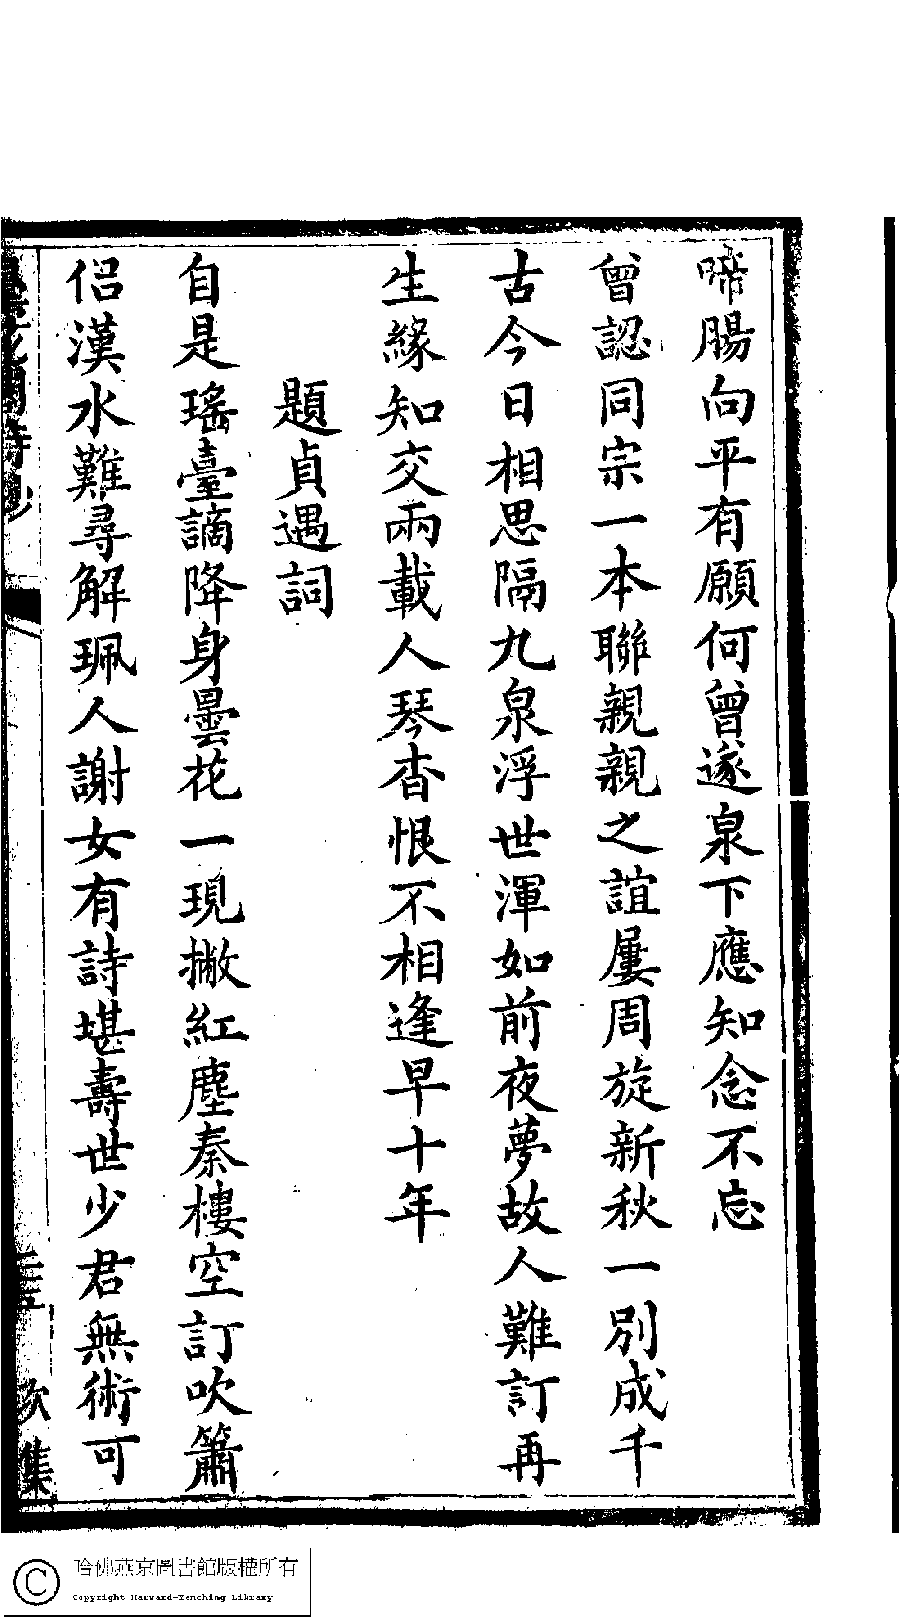 啼腸向平有願何曾遂泉下應知念不忘
曾認同宗一本聯親親之誼屢周旋新秋一別成千
古今日相思隔九泉浮世渾如前夜夢故人難訂再
生緣知交兩載人琴杳恨不相逢早十年
題貞遇詞
自是瑤臺謫降身曇花一現撇紅塵秦樓空訂吹簫
侶漢水難尋解珮人謝女有詩堪壽世少君無術可
閣詩鈔
次集
哈佛燕京圖書館版權所有
Copyright Harvard-Yenching Library